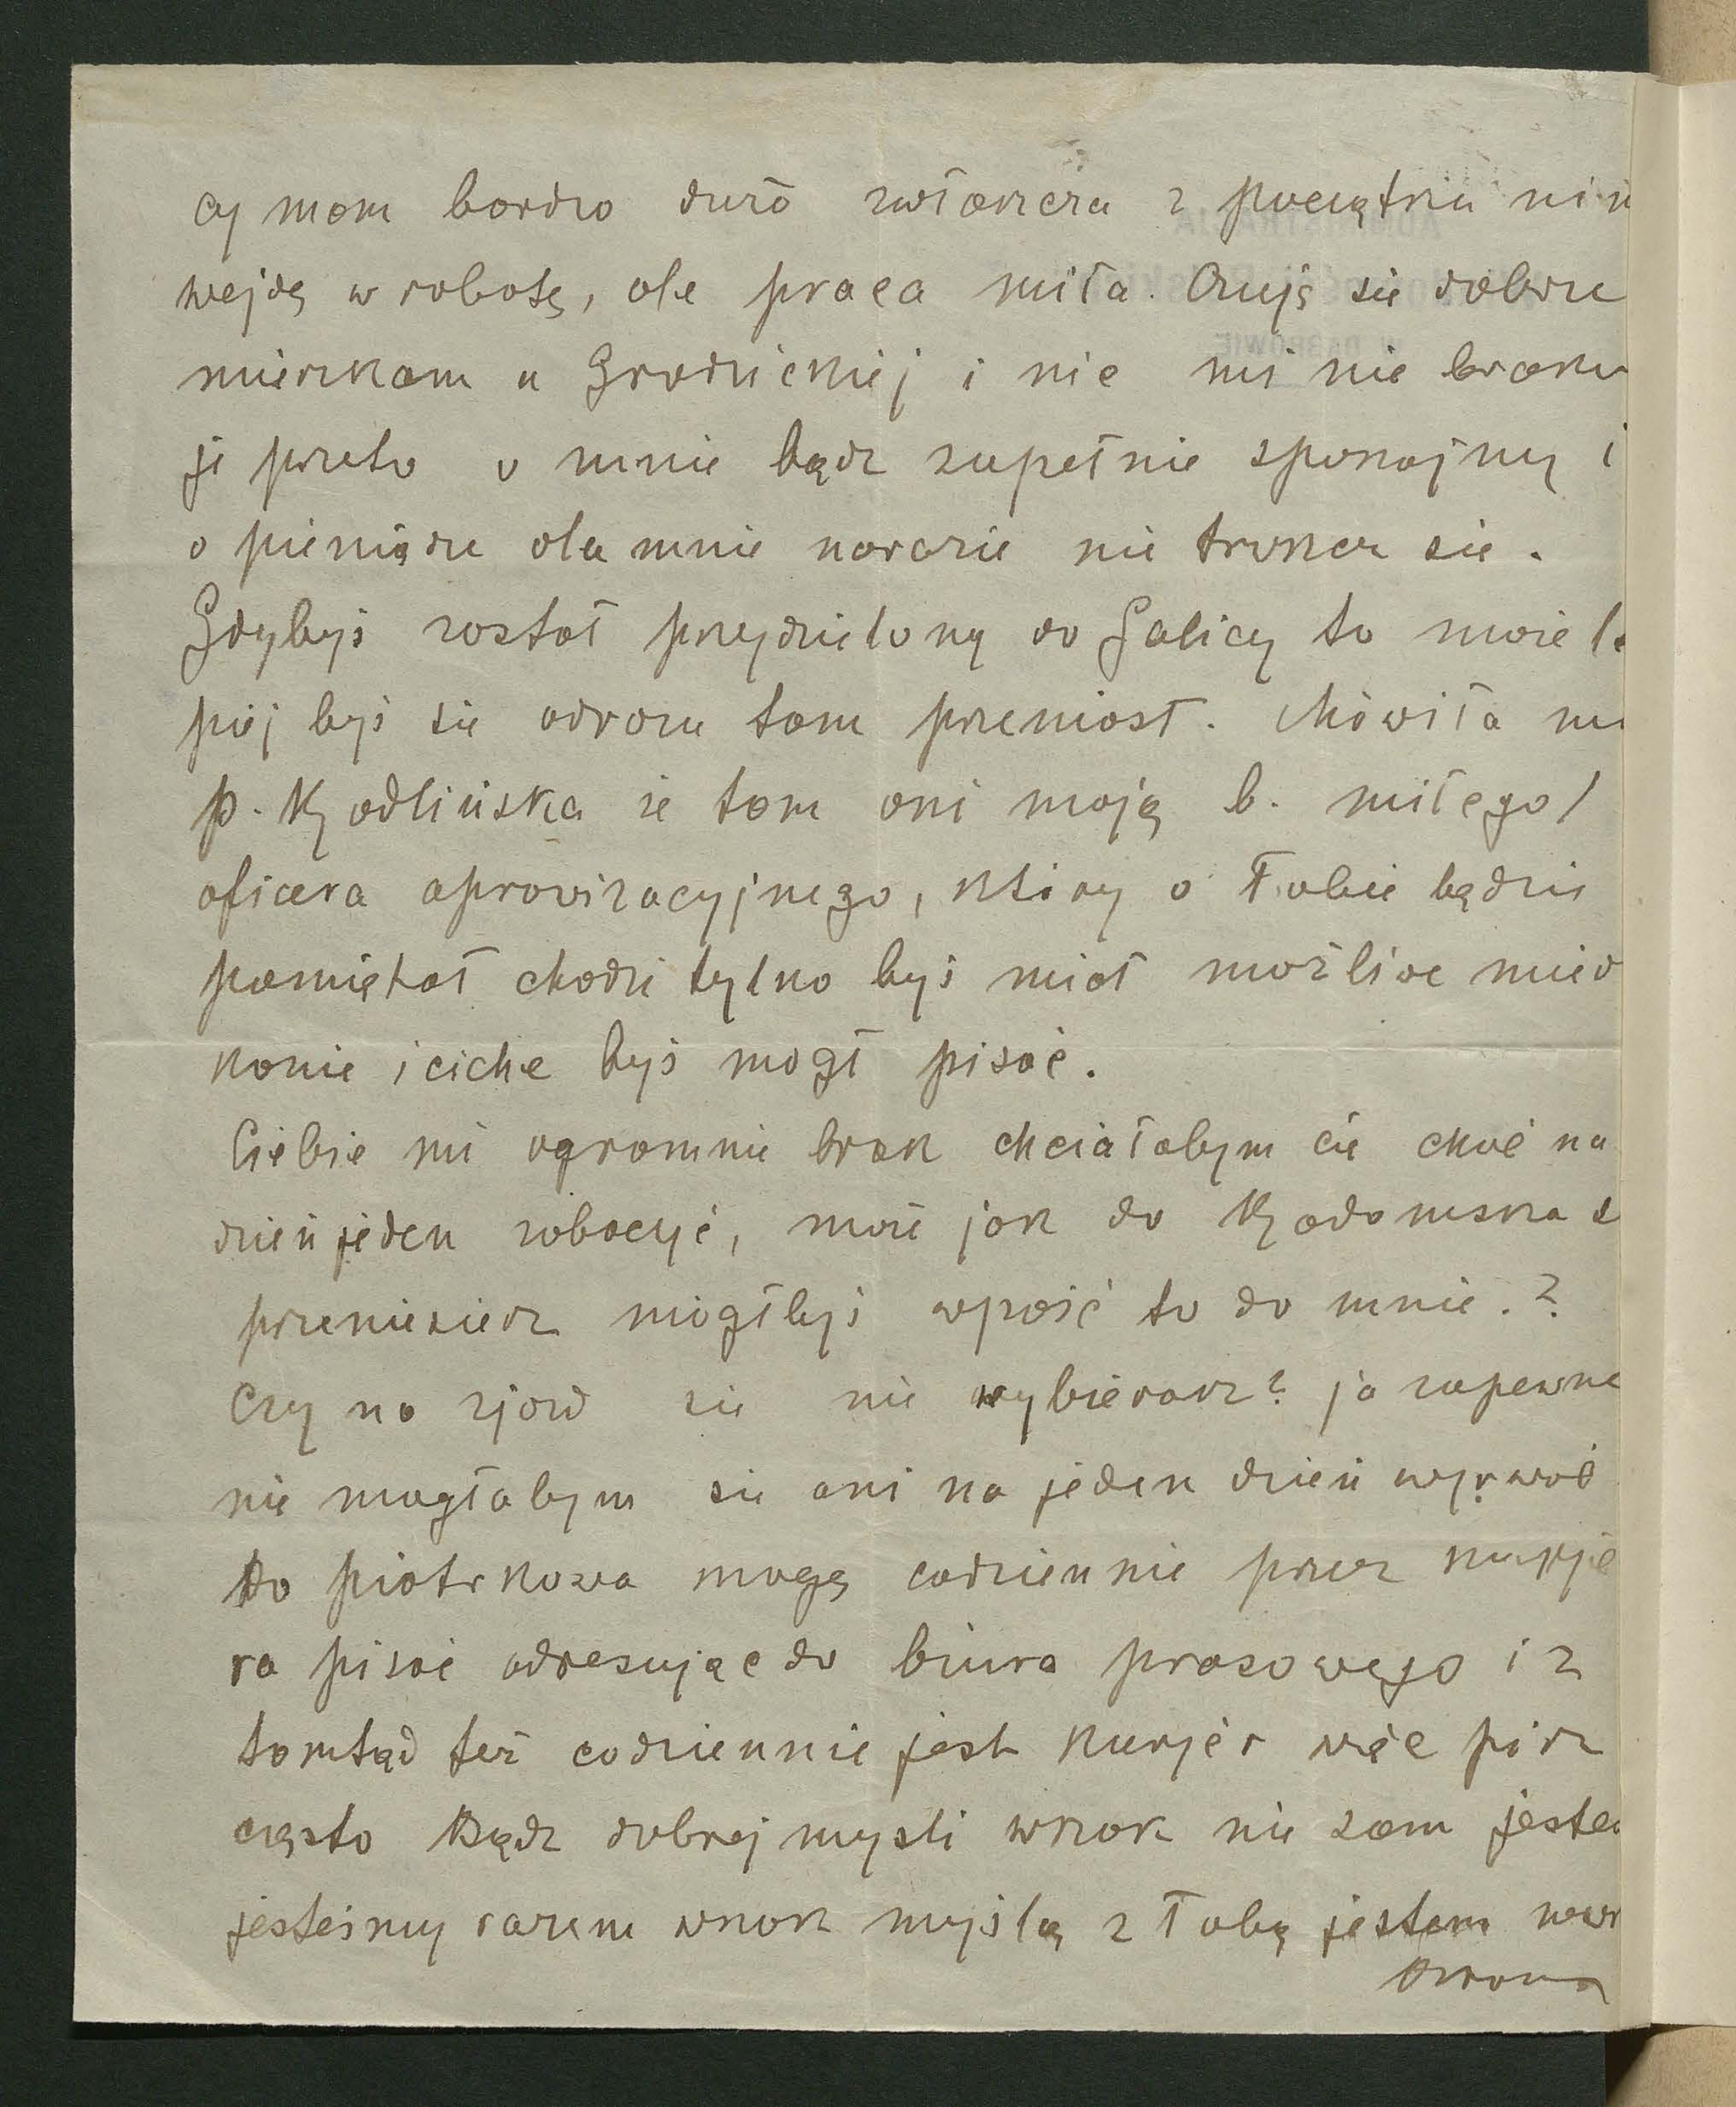 cy mam bardzo dużo zwłaszcza z początku nim
wejdę w robotę, ale praca miła. Czuję się dobrze
mieszkam u Grodzickiej i nic mi nie braku
je przeto o mnie bądz zupełnie spokojny i
o pieniądze dla mnie narazie nie troskaj się.
Gdybyś został przydzielony do Galicy to może le
piej byś się odrazu tam przeniosł. Mówiła mi
p. Kędlińska że tam oni mają b. miłego
oficera aprowizacyjnego, który o Tobie będzie
pamiętał chodzi tylko byś miał możliwe miesz
kanie i ciche byś mogł pisać.
Ciebie mi ogromnie brak chciałabym cię choć na
dzień jeden zobaczyć, może jak do Radomska s
przeniesiesz mógłbyś wpaść to do mnie.?
Czy na zjazd się nie wybierasz? ja zapewne
nie mogłabym się ani na jeden dzień wyrwać
Do piotrkowa mogę codziennie przez kurje
ra pisać adresując do biura prasowego i z
tamtąd też codziennie jest kurjer więc pisz
często Bądz dobrej mysli wszak nie sam jesteś
jesteśmy razem wszak myślą z Tobą jestem